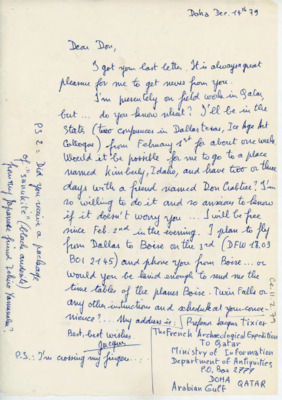 Doha Dec. 14th 79
Dear Don,
I got your last letter. It is always great
pleasure for me to get news from you.
I'm presently on field work in Qatar,
but... do you know what? I'll be in the
State (two conferences in Dallas Texas, Ice Age Art
Colloque) from February 1st for about one week.
Would it be possible for me to go to a place
named Kimberly, Idaho, and have two or three
days with a friend named Don Crabtree? I'm
so willing to do it and so anxious to know
if it doesn't worry you... I will be free
since Feb. 2nd in the evening. I plan to fly
from Dallas to Boise on the 3rd (DFW 18.03
BOI 21.45) and phone you from Boise... or
would you be kind enough to send me the
time tables of the planes Boise-Twin Falls or
any other instruction and schedule at your conve-
nience?... My address is: Professor Jacques Tixier
The French Archaeological Expedition
To Qatar
Ministry of Information
Department of Antiquities
P.O. Box 2777
DOHA QATAR
Arabian Gulf
Best, best wishes
Jacques
P.S.: I'm crossing my fingers....
PS 2: Did you receive a package
of "sanukite" (black andesite)
from my Japanese friend